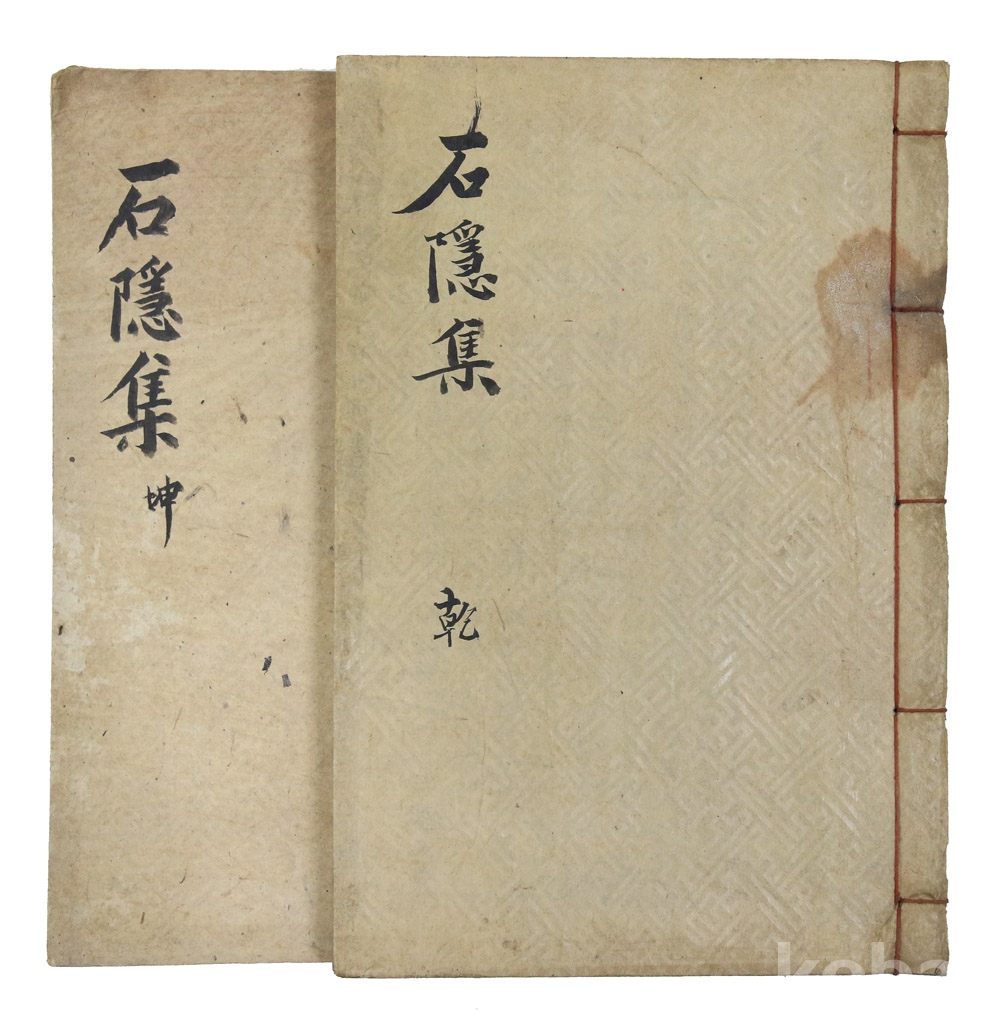 石隱集
乾
石隱集
坤